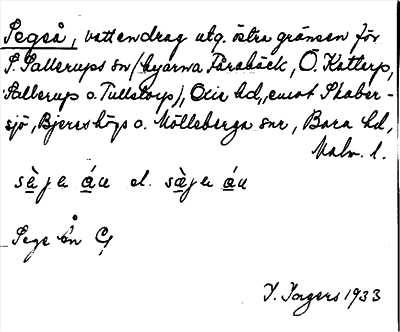 Segeå, vattendrag utg. östra gränsen för
S. Sallerups sn (byarna Särabäck, Ö. Kattarp,
Sallerup o. Tullstorp), Oxie hd, emot Skaber-
sjö, Bjereshögs o. Mölleberga snr, Bara hd,
Malm. l.
sèje áu el. sèje áu
Sege ån G
I. Ingers 1933